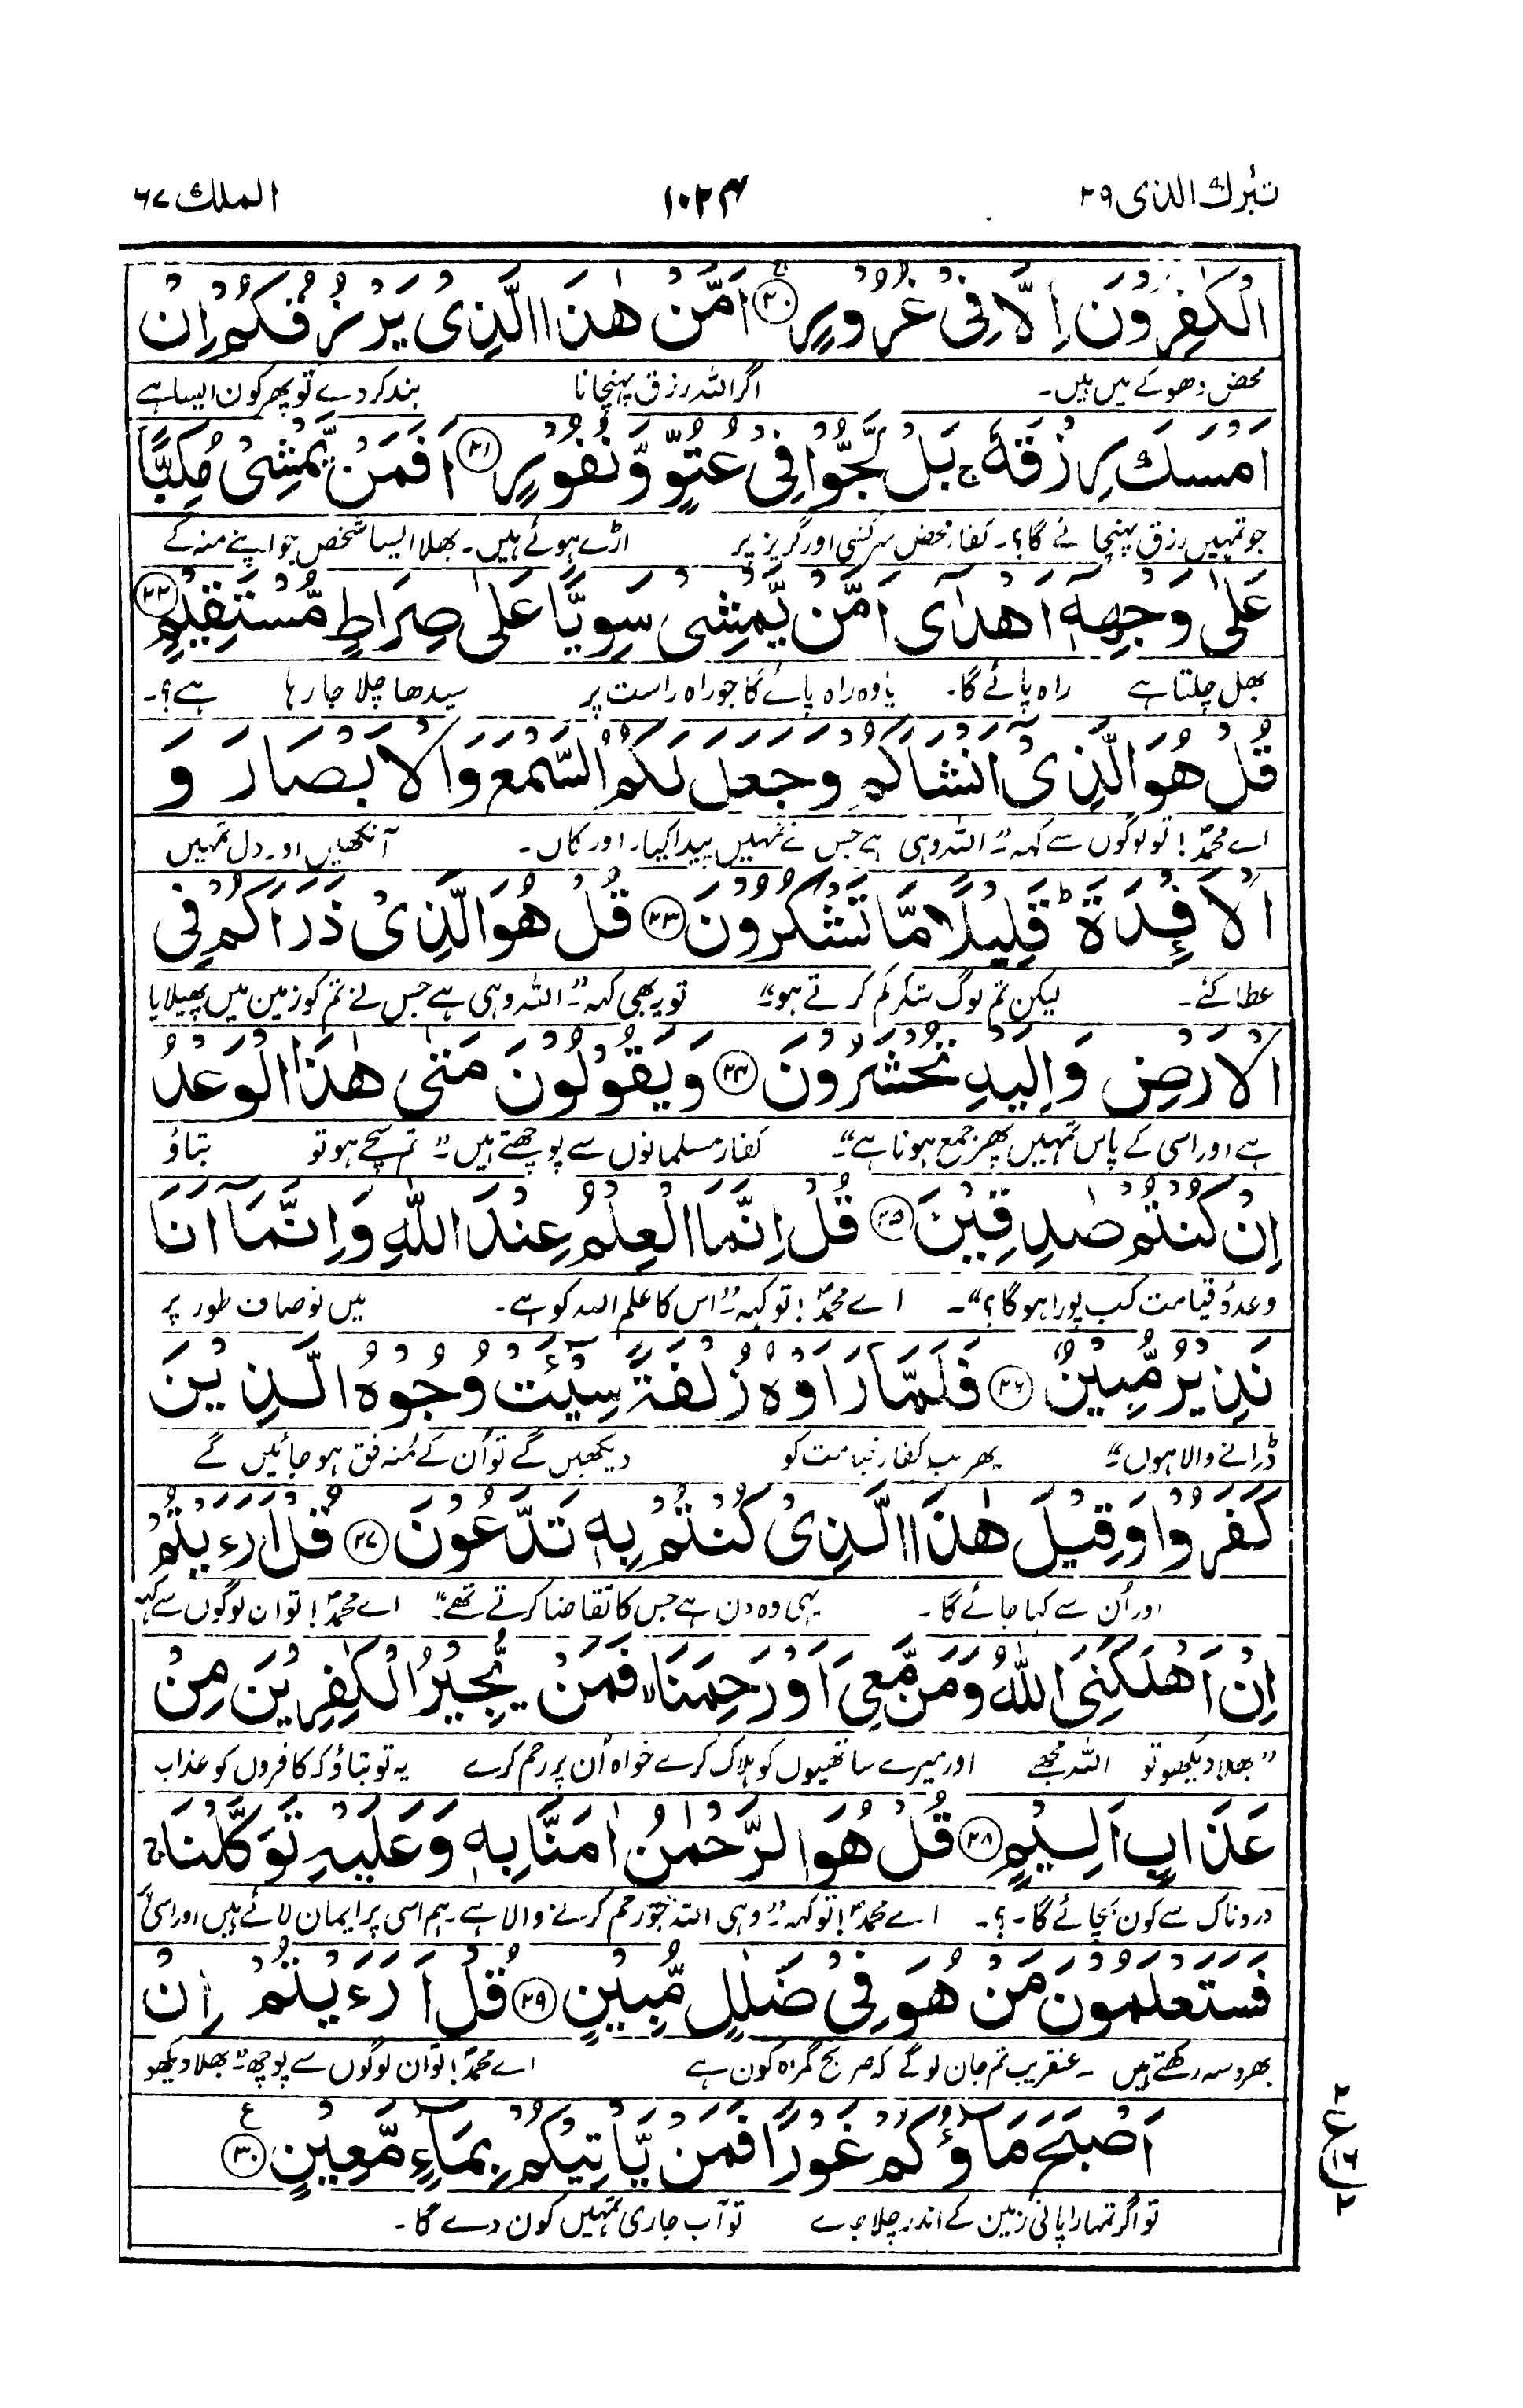 تبٰرك الذى ٢٩
١٠٢٤
الملك ٦٧
الْكٰفِرُوْنَ اِلَّا فِىْ غُرُوْرٍ ﴿٢٠﴾ اَمَّنْ هٰذَا الَّذِىْ يَرْزُقُكُمْ اِنْ
محض دھوکے میں ہیں۔ اگر اللہ رزق پہنچانا بند کر دے تو پھر کون ایسا ہے
اَمْسَكَ رِزْقَهٗ ج بَلْ لَّجُّوْا فِىْ عُتُوٍّ وَّنُفُوْرٍ ﴿٢١﴾ اَفَمَنْ يَّمْشِىْ مُكِبًّا
جو تمہیں رزق پہنچائے گا؟۔ کفار محض سرکشی اور گریز پر اڑے ہوئے ہیں۔ بھلا ایسا شخص جو اپنے منہ کے
عَلٰى وَجْهِهٖٓ اَهْدٰٓى اَمَّنْ يَّمْشِىْ سَوِيًّا عَلٰى صِرَاطٍ مُّسْتَقِيْمٍ ﴿٢٢﴾
بھل چلتا ہے راہ پائے گا۔ یا وہ راہ پائے گا جو راہ راست پر سیدھا چلا جا رہا ہے؟۔
قُلْ هُوَ الَّذِىْٓ اَنْشَاَكُمْ وَجَعَلَ لَكُمُ السَّمْعَ وَالْاَبْصَارَ وَ
اے محمدؐ! تو لوگوں سے کہہ ”اللہ وہی ہے جس نے تمہیں پیدا کیا۔ اور کان۔ آنکھیں اور دل تمہیں
الْاَفْـِٕدَةَ ط قَلِيْلًا مَّا تَشْكُرُوْنَ ﴿٢٣﴾ قُلْ هُوَ الَّذِىْ ذَرَاَكُمْ فِى
عطا کئے۔ لیکن تم لوگ شکر کم کرتے ہو“۔ تو یہ بھی کہہ ”اللہ وہی ہے جس نے تم کو زمین میں پھیلایا
الْاَرْضِ وَاِلَيْهِ تُحْشَرُوْنَ ﴿٢٤﴾ وَيَقُوْلُوْنَ مَتٰى هٰذَا الْوَعْدُ
ہے اور اسی کے پاس تمہیں پھر جمع ہونا ہے“۔ کفار مسلمانوں سے پوچھتے ہیں ”تم سچے ہو تو بتاؤ
اِنْ كُنْتُمْ صٰدِقِيْنَ ﴿٢٥﴾ قُلْ اِنَّمَا الْعِلْمُ عِنْدَ اللّٰهِ وَاِنَّمَآ اَنَا
وعدۂ قیامت کب پورا ہوگا؟“۔ اے محمدؐ! تو کہہ ”اس کا علم اللہ کو ہے۔ میں تو صاف طور پر
نَذِيْرٌ مُّبِيْنٌ ﴿٢٦﴾ فَلَمَّا رَاَوْهُ زُلْفَةً سِيْٓـَٔتْ وُجُوْهُ الَّذِيْنَ
ڈرانے والا ہوں“۔ پھر جب کفار قیامت کو دیکھیں گے تو اُن کے مُنہ فق ہو جائیں گے
كَفَرُوْا وَقِيْلَ هٰذَا الَّذِىْ كُنْتُمْ بِهٖ تَدَّعُوْنَ ﴿٢٧﴾ قُلْ اَرَءَيْتُمْ
اور اُن سے کہا جائے گا۔ یہی وہ دن ہے جس کا تقاضا کرتے تھے“۔ اے محمدؐ! تو ان لوگوں سے کہہ
اِنْ اَهْلَكَنِىَ اللّٰهُ وَمَنْ مَّعِىَ اَوْ رَحِمَنَا لا فَمَنْ يُّجِيْرُ الْكٰفِرِيْنَ مِنْ
”بھلا دیکھو تو اللہ مجھے اور میرے ساتھیوں کو ہلاک کرے خواہ اُن پر رحم کرے یہ تو بتاؤ کہ کافروں کو عذاب
عَذَابٍ اَلِيْمٍ ﴿٢٨﴾ قُلْ هُوَ الرَّحْمٰنُ اٰمَنَّا بِهٖ وَعَلَيْهِ تَوَكَّلْنَا ج
دردناک سے کون بچائے گا۔؟۔ اے محمدؐ! تو کہہ ”وہی اللہ جو رحم کرنے والا ہے۔ ہم اسی پر ایمان لائے ہیں اور اسی پر
فَسَتَعْلَمُوْنَ مَنْ هُوَ فِىْ ضَلٰلٍ مُّبِيْنٍ ﴿٢٩﴾ قُلْ اَرَءَيْتُمْ اِنْ
بھروسہ رکھتے ہیں۔ عنقریب تم جان لوگے کہ صریح گمراہ کون ہے اے محمدؐ! تو ان لوگوں سے پوچھ ”بھلا دیکھو
اَصْبَحَ مَآؤُكُمْ غَوْرًا فَمَنْ يَّاْتِيْكُمْ بِمَآءٍ مَّعِيْنٍ ﴿٣٠﴾ ع
تو اگر تمہارا پانی زمین کے اندر چلا جاے تو آب جاری تمہیں کون دے گا۔
٢
ع
١٦
٢